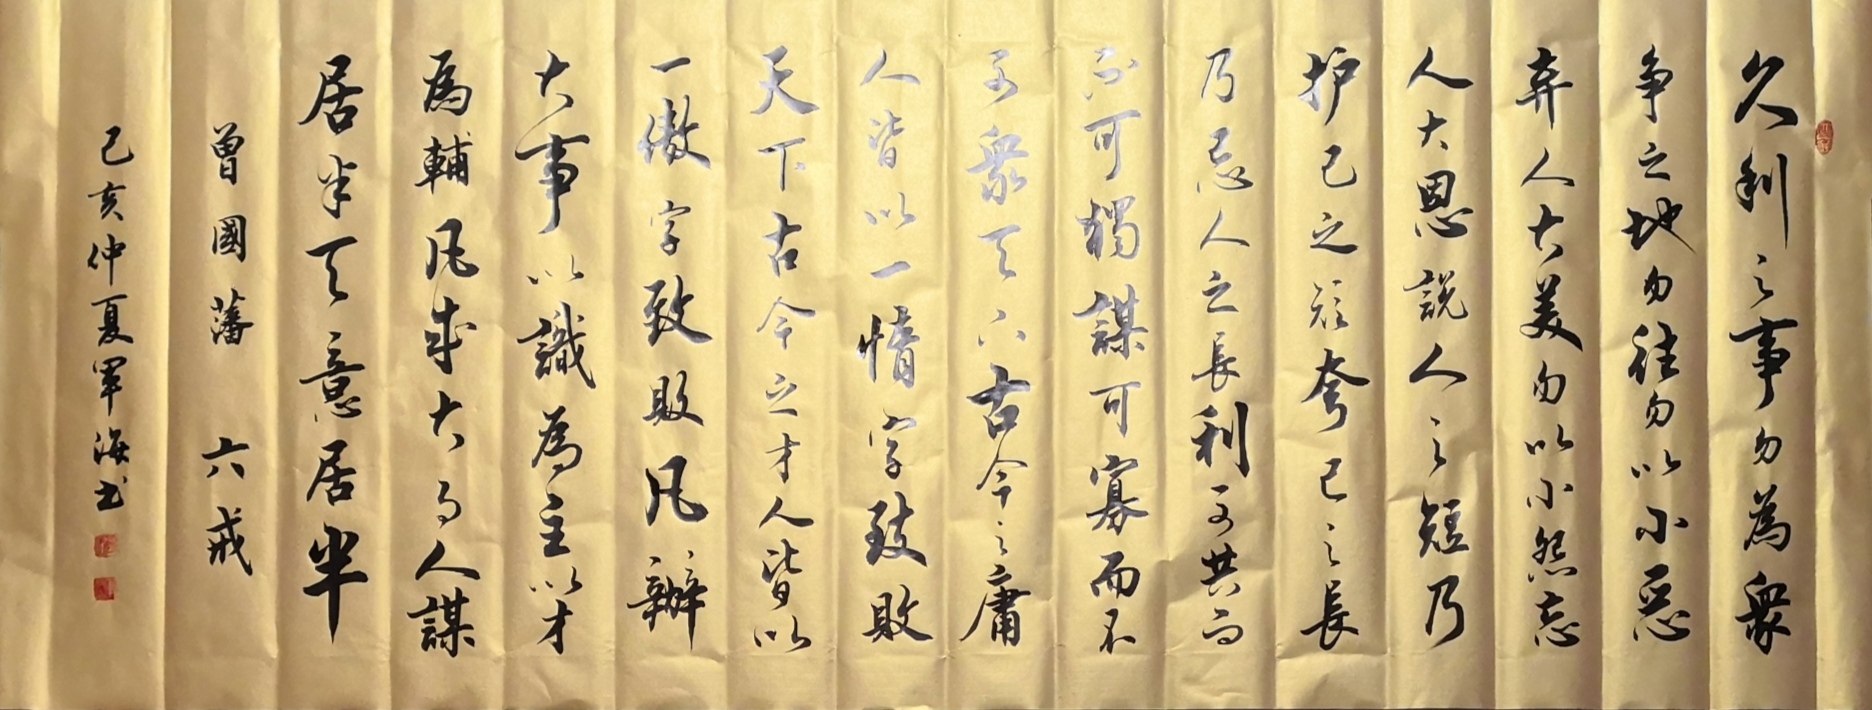 久利之事勿為衆
争之地勿往勿以小惡
弃人大美勿以小怨忘
人大恩說人之短乃
护己之短夸己之長
乃忌人之長利可共而
不可獨謀可寡而不
可衆天下古今之庸
人皆以一惰字致敗
天下古今之才人皆以
一傲字致敗凡辦
大事以識為主以才
為輔凡成大事人謀
居半天意居半
曾國藩 六戒
己亥仲夏軍海书